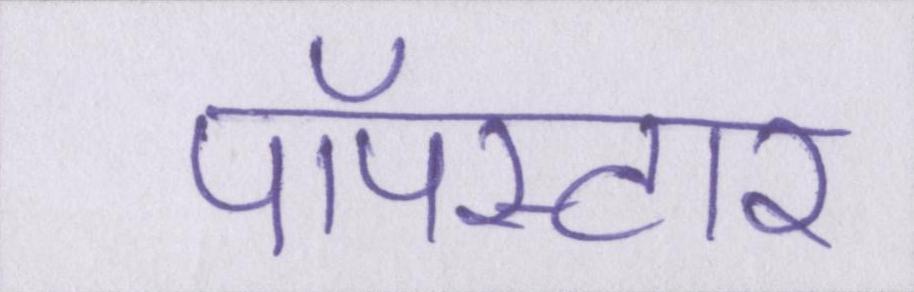 पॉपस्टार